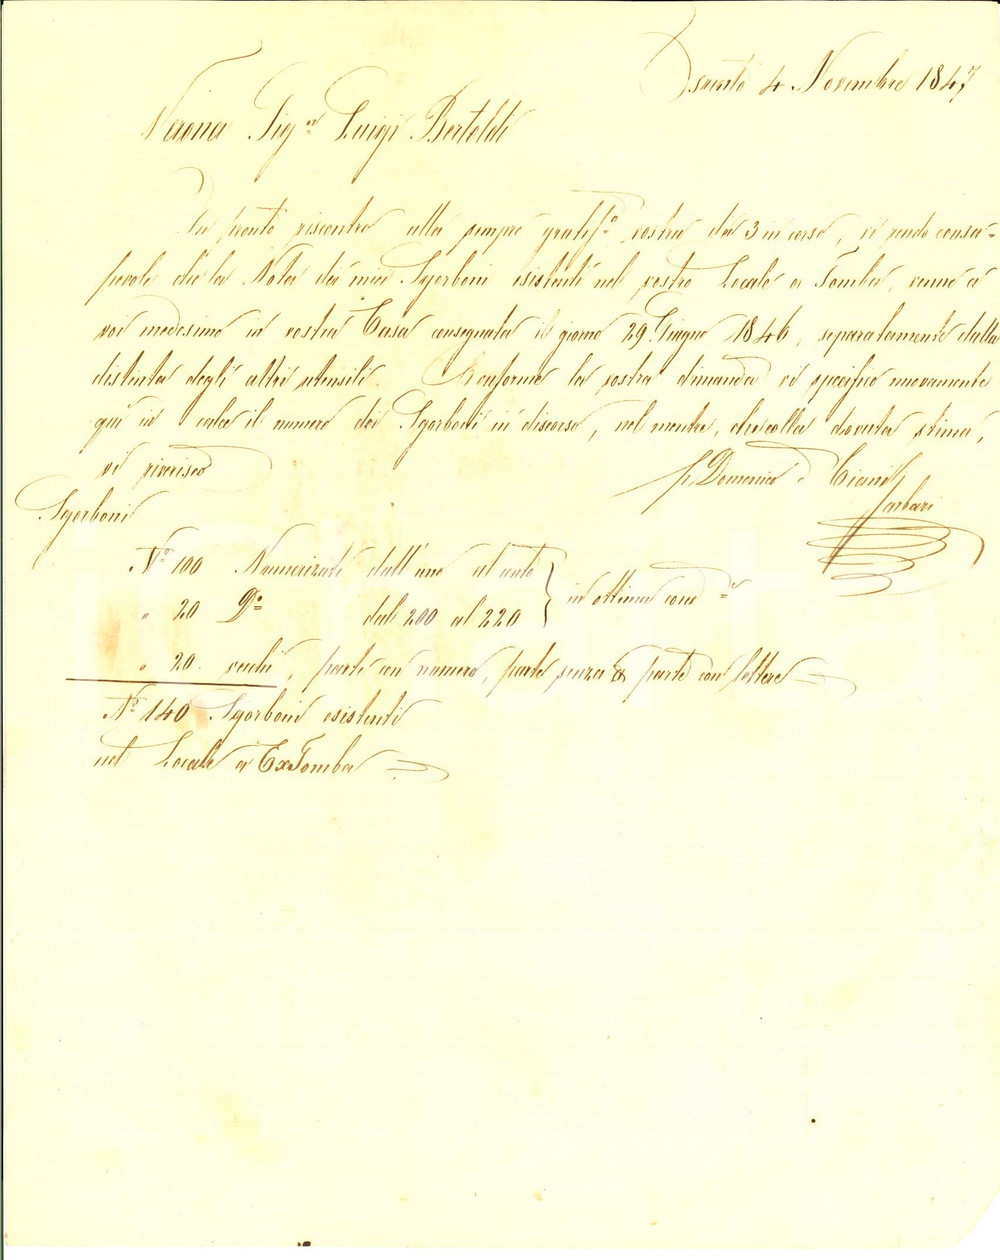 Trento 4 Novembre 1847
Verona Sig.r Luigi Bertoldi
In pronto riscontro alla sempre gratis.a vostra dei 3 in corso, vi rendo consa=
pevole che la Nota dei miei Sgorboni esistenti nel vostro Locale a Tomba, venne a
voi medesimo in vostra Casa consegnata il giorno 29 Giugno 1846, separatamente dalla
distinta degli altri utensili. Conforme la vostra dimanda vi specifico nuovamente
qui in calce il numero dei Sgorboni in discorso, nel mentre, che colla dovuta stima,
vi riverisco
p Domenico Ciani
Sgorboni
N.o 100 Numerizati dall'uno al cento
" 20 D.o dal 200 al 220
in ottima cond.e
" 20 vecchi, parte con numero, parte senza & parte con lettere
N.o 140 Sgorboni esistenti
nel Locale a Ex Tomba